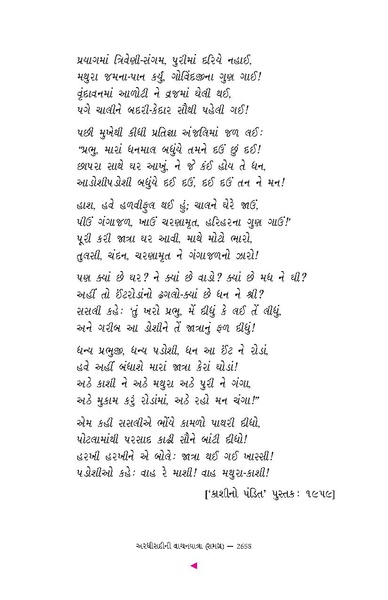 પ્રયાગમાં ત્રિવેણી-સંગમ, પુરીમાં દરિયે નહાઈ,
મથુરા જમના-પાન કર્યું, ગોવિંદજીના ગુણ ગાઈ!
વૃંદાવનમાં આળોટી ને વ્રજમાં ઘેલી થઈ,
પગે ચાલીને બદરી-કેદાર સૌથી પહેલી ગઈ!
પછી મુખેથી કીધી પ્રતિજ્ઞા અંજલિમાં જળ લઈ:
“પ્રભુ, મારાં ધનમાલ બધુંયે તમને દઉં છું દઈ!
છાપરા સાથે ઘર આખું, ને જે કંઈ હોય તે ધન,
આડોશીપડોશી બધુંયે દઈ દઉં, દઈ દઉં તન ને મન!
હાશ, હવે હળવીફૂલ થઈ હું; ચાલને ઘેરે જાઉં,
પીઉં ગંગાજળ, ખાઉં ચરણામૃત, હરિહરના ગુણ ગાઉં!'
પૂરી કરી જાત્રા ઘર આવી, માથે મોટો ભારો,
તુલસી, ચંદન, ચરણામૃત ને ગંગાજળનો ઝારો!
પણ ક્યાં છે ઘર? ને ક્યાં છે વાડો? ક્યાં છે મધ ને ઘી?
અહીં તો ઈંટરોડાંનો ઢગલો-ક્યાં છે ધન ને શ્રી?
સસલી કહે: ‘તું ખરો પ્રભુ, મેં દીધું કે લઈ તેં લીધું,
અને ગરીબ આ ડોશીને તેં જાત્રાનું ફળ દીધું!
ધન્ય પ્રભુજી, ધન્ય પડોશી, ધન આ ઈંટ ને રોડાં,
હવે અહીં બંધાશે મારાં જાત્રા કેરાં ઘોડાં!
અઠે કાશી ને અઠે મથુરા અઠે પુરી ને ગંગા,
અઠે મુકામ કરું રોડાંમાં, અઠે રહો મન ચંગા!”
એમ કહી સસલીએ ભોંયે કામળો પાથરી દીધો,
પોટલામાંથી પરસાદ કાઢી સૌને બાંટી દીધો!
હરખી હરખીને એ બોલે: જાત્રા થઈ ગઈ ખાસ્સી!
પડોશીઓ કહે: વાહ રે માશી! વાહ મથુરા-કાશી!
['કાશીનો પંડિત’ પુસ્તક: ૧૯૫૯]
અરધીસદીની વાચનયાત્રા (સમગ્ર) — 2658